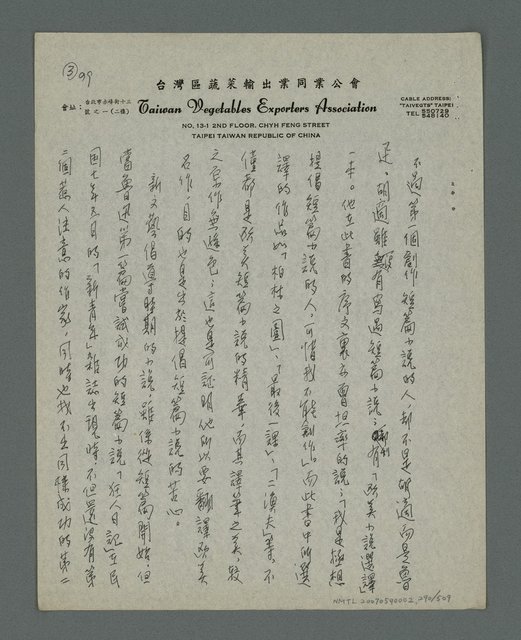 ③99
台灣區蔬菜輸出業同業公會
會址：台北市赤峰街十三號之一（二樓）
Taiwan Vegetables Exporters Association
NO. 13-1 2ND FLOOR, CHYH FENG STREET
TAIPEI TAIWAN REPUBLIC OF CHINA
CABLE ADDRESS:
"TAIVEGTS" TAIPEI
TEL 550729
548140
不過第一個創作短篇小說的人，却不是胡適而是魯
迅，胡適雖沒有寫過短篇小說；却有「歐美小說選譯」
一本。他在此書的序文裏亦曾坦率的說；「我是極想
提倡短篇小說的人，可惜我不能創作」。而此書中所選
譯的作品如「柏林之圍」、「最後一課」、「二漁夫」等。不
僅都是歐美短篇小說的精華，而其譯筆之美，較
之原作無遜色；這也是可証明他所以要翻譯歐美
名作，目的也是出於提倡短篇小說的苦心。
新文藝倡導時期的小說，雖係從短篇開始，但
當魯迅第一篇嘗試成功的短篇小說「狂人日記」在民
國七年五月的「新青年」雜誌出現時，不但還沒有第
二個惹人注意的作家，同時也找不出同樣成功的第二
NMTL 20070540002, 290/509